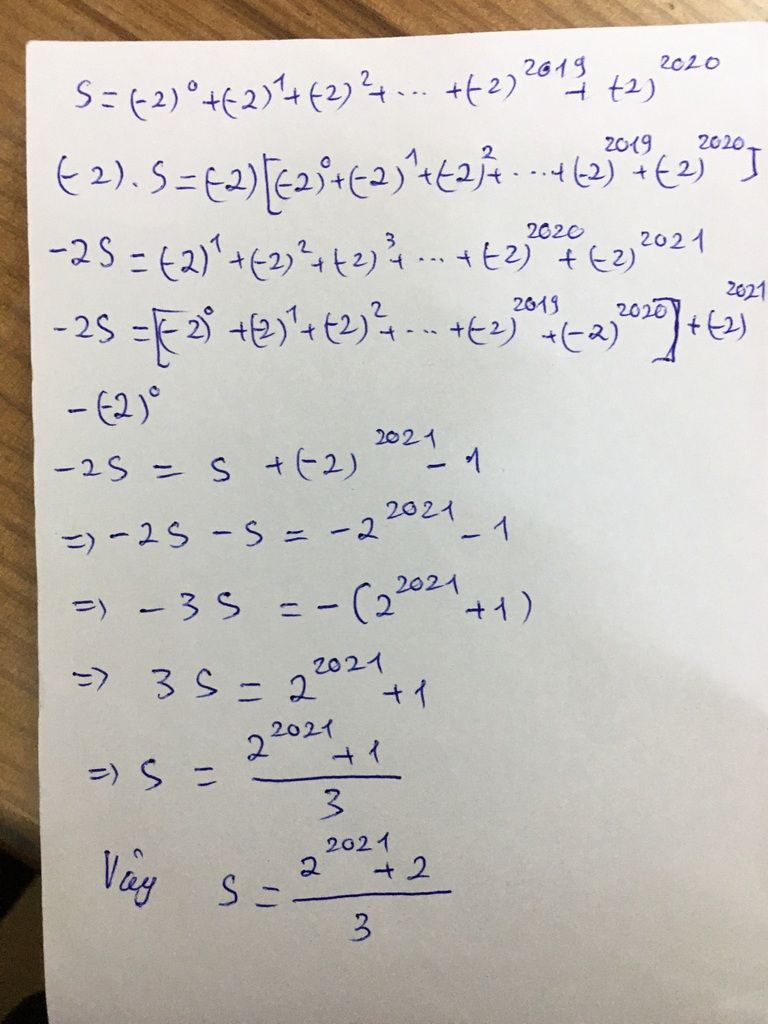 S = (-2)⁰ + (-2)¹ + (-2)² + ... + (-2)²⁰¹⁹ + (-2)²⁰²⁰
(-2). S = (-2)[(-2)⁰ + (-2)¹ + (-2)² + ... + (-2)²⁰¹⁹ + (-2)²⁰²⁰]
-2S = (-2)¹ + (-2)² + (-2)³ + ... + (-2)²⁰²⁰ + (-2)²⁰²¹
-2S = [(-2)⁰ + (-2)¹ + (-2)² + ... + (-2)²⁰¹⁹ + (-2)²⁰²⁰] + (-2)²⁰²¹
- (-2)⁰
-2S = S + (-2)²⁰²¹ - 1
=> -2S - S = -2²⁰²¹ - 1
=> -3S = -(2²⁰²¹ + 1)
=> 3S = 2²⁰²¹ + 1
=> S = (2²⁰²¹ + 1)/3
Vậy S = (2²⁰²¹ + 2)/3